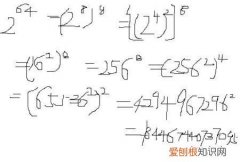 2^64 = (2^8)^8 = [(2^4)^2]^8
= (16^2)^8 = 256^8 = (256^2)^4
= [(65536)^2]^2 = 4294967296^2
= 18446744073709
爱刨根知识网